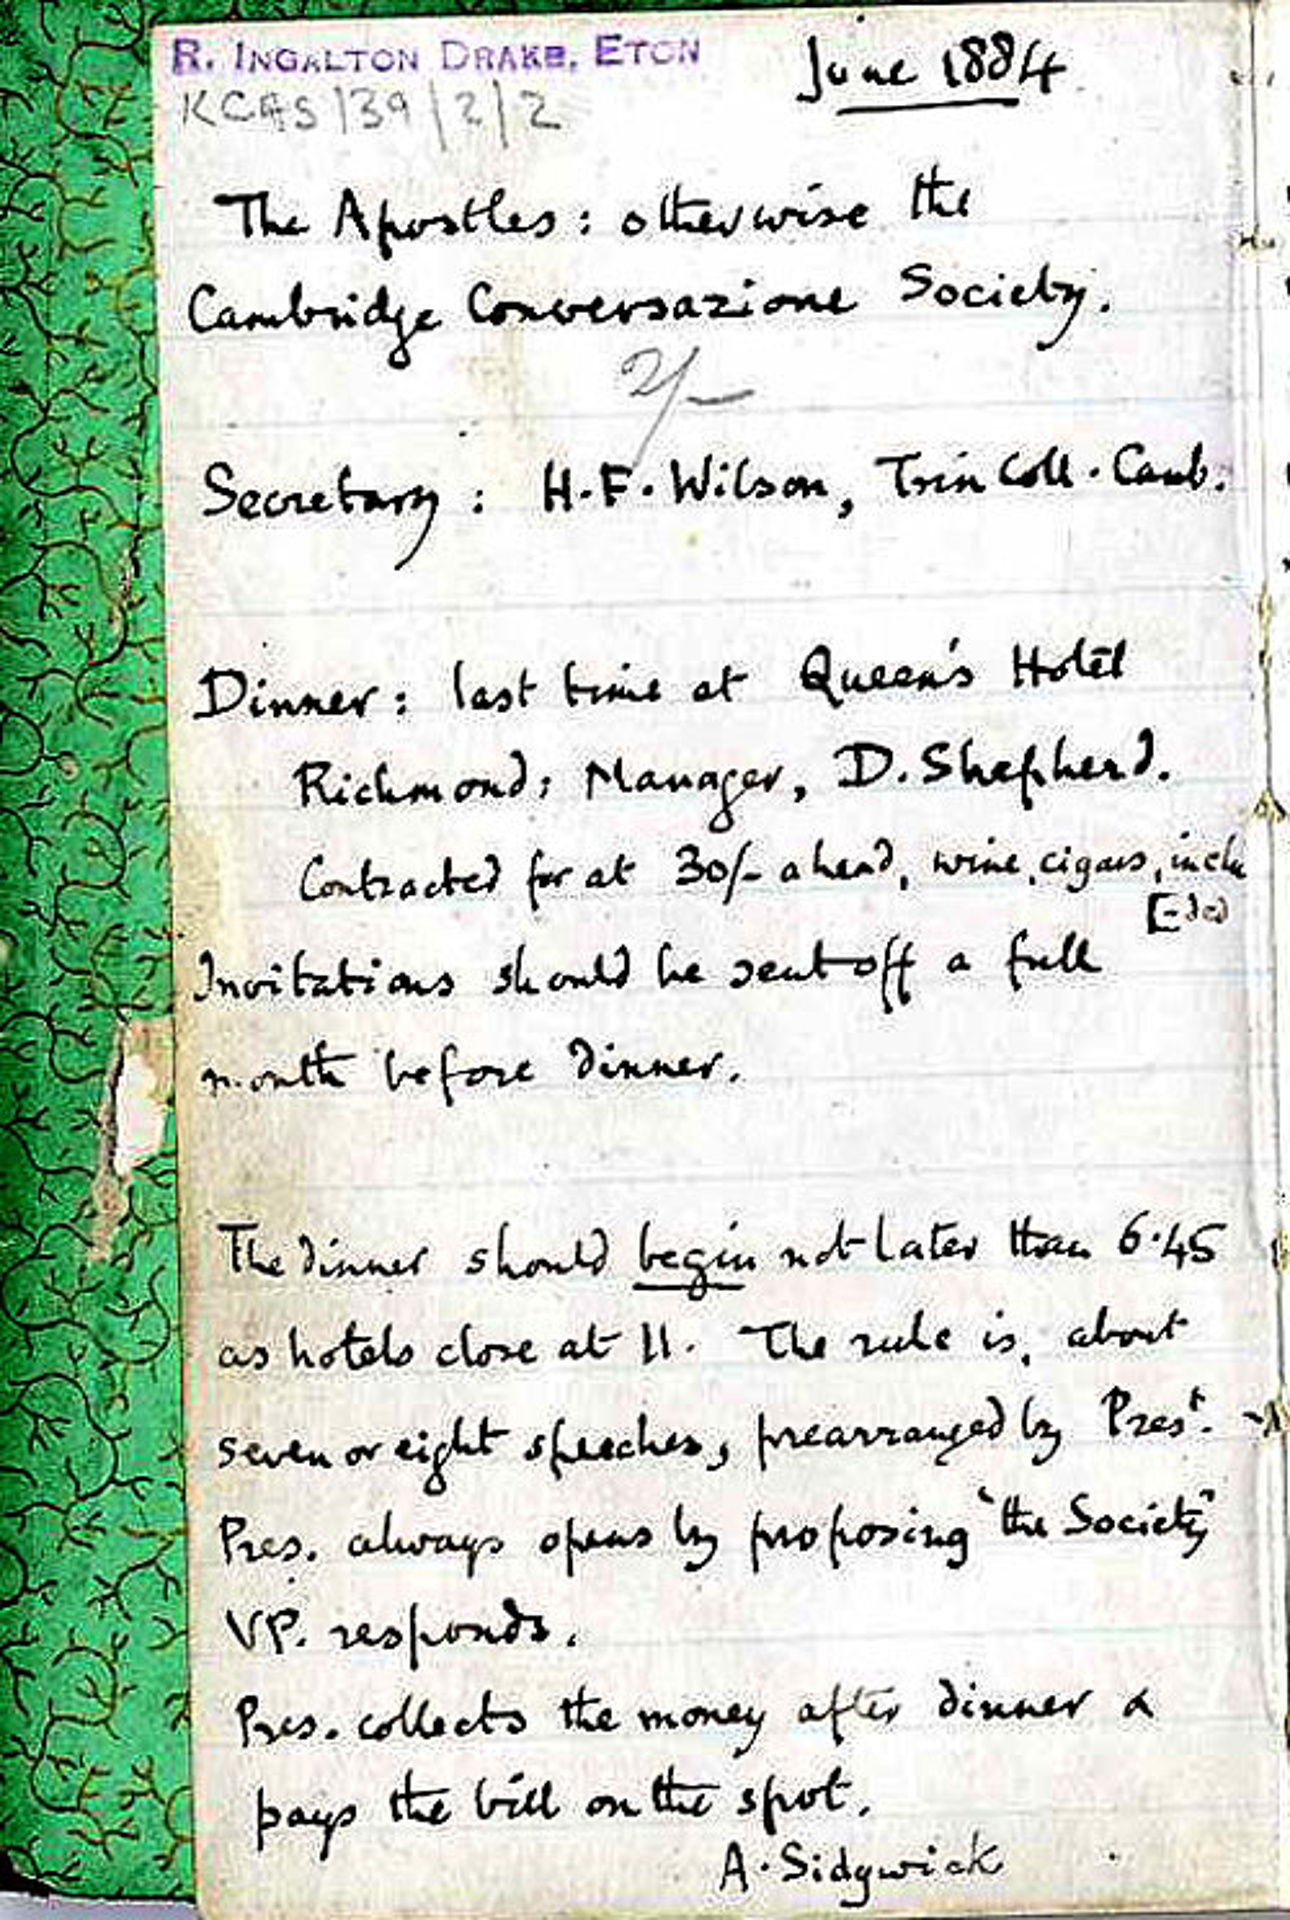 R. INGALTON DRAKE, ETON
June 1884
KCAS/39/2/2
The Apostles: otherwise the
Cambridge Conversazione Society.
2/-
Secretary: H.F. Wilson, Trin Coll. Camb.
Dinner: last time at Queen's Hotel
Richmond; Manager, D. Shepherd.
Contracted for at 30/- a head, wine, cigars, inclu
[-ded
Invitations should be sent off a full
month before dinner.
The dinner should begin not later than 6.45
as hotels close at 11. The rule is, about
seven or eight speeches, prearranged by Prest.
Pres. always opens by proposing "the Society"
VP. responds.
Pres. collects the money after dinner &
pays the bill on the spot.
A. Sidgwick